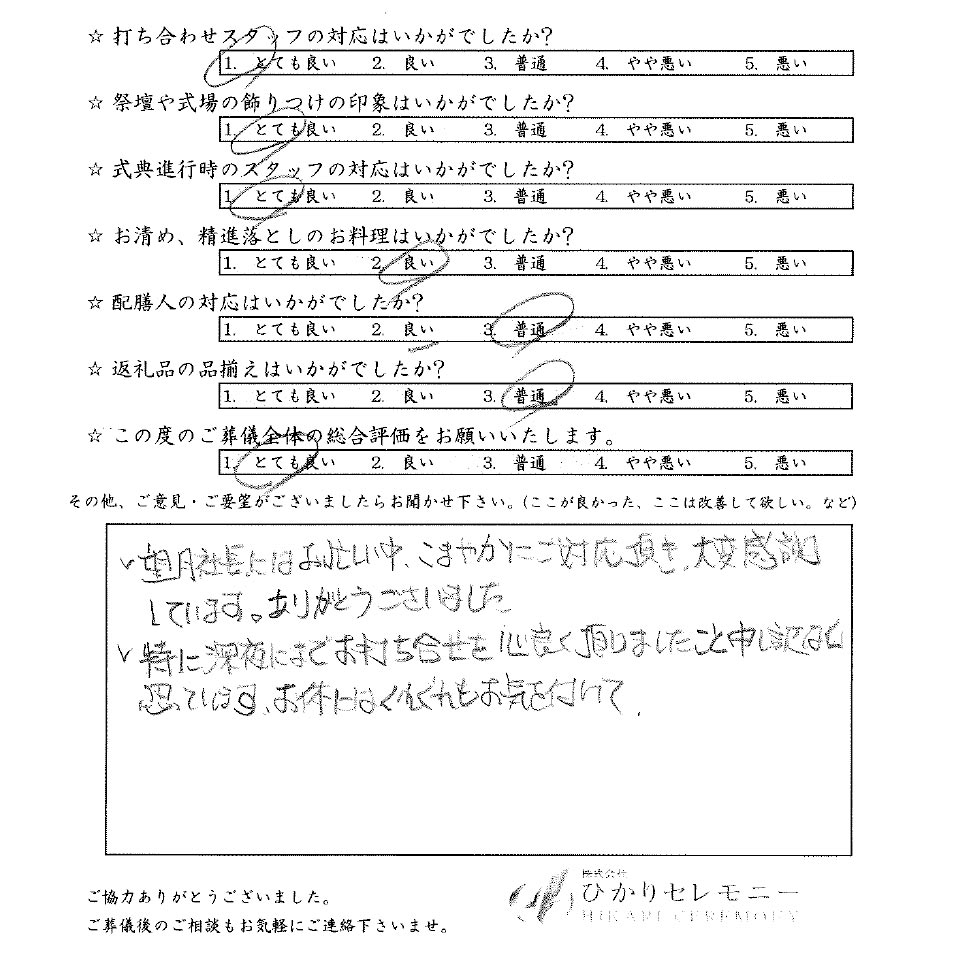 ☆ 打ち合わせスタッフの対応はいかがでしたか?
1. とても良い 2. 良い 3. 普通 4. やや悪い 5. 悪い
☆ 祭壇や式場の飾りつけの印象はいかがでしたか?
1. とても良い 2. 良い 3. 普通 4. やや悪い 5. 悪い
☆ 式典進行時のスタッフの対応はいかがでしたか?
1. とても良い 2. 良い 3. 普通 4. やや悪い 5. 悪い
☆ お清め、精進落としのお料理はいかがでしたか?
1. とても良い 2. 良い 3. 普通 4. やや悪い 5. 悪い
☆ 配膳人の対応はいかがでしたか?
1. とても良い 2. 良い 3. 普通 4. やや悪い 5. 悪い
☆ 返礼品の品揃えはいかがでしたか?
1. とても良い 2. 良い 3. 普通 4. やや悪い 5. 悪い
☆ この度のご葬儀全体の総合評価をお願いいたします。
1. とても良い 2. 良い 3. 普通 4. やや悪い 5. 悪い
その他、ご意見・ご要望がございましたらお聞かせ下さい。(ここが良かった、ここは改善して欲しい。など)
望月社長にはお忙しい中、こまやかにご対応頂き、大変感謝
しています。ありがとうございました
特に深夜にまでお打ち合せを心良く頂しましたこと申し訳なく
思っています、お体にはくれぐれもお気を付けて.
ご協力ありがとうございました。
ご葬儀後のご相談もお気軽にご連絡下さいませ。
株式会社
ひかりセレモニー
HIKARI CEREMONY